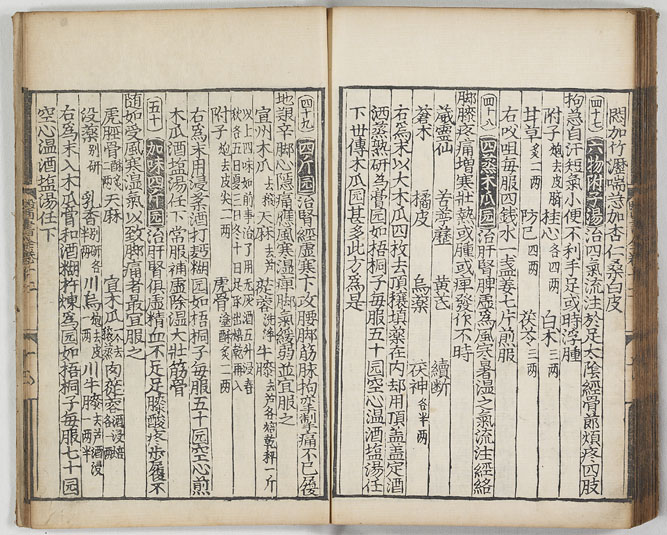 悶加竹瀝喘急加杏仁桑白皮
四十七 六物附子湯 治四氣流注於足太陰經骨節煩疼四肢
拘急自汗短氣小便不利手足或時浮腫
附子 炮去皮臍 桂心 各四兩 白朮 三兩
甘草 炙一兩 防己 四兩 茯苓 三兩
右㕮咀每服四錢水二盞姜七片煎服
四十八 四蒸木瓜园 治肝腎脾虛為風寒暑溫之氣流注經絡
脚膝疼痛增寒壯熱或腫或痺發作不時
葳靈仙 苦葶藶 黃芪 續斷
蒼朮 橘皮 烏藥 茯神 各半兩
右為末以大木瓜四枚去頂穰填藥在內却用頂盖盖定酒
洒蒸熟研為膏园如梧桐子每服五十园空心溫酒塩湯任
下世傳木瓜园甚多此方為是
四十九 四斤园 治腎經虛寒下攻腰脚筋脉拘挛掣痛不已履
地艱辛脚心隱痛應風寒濕痺脚氣緩弱並宜服之
宣州木瓜 去穰 天麻 去芦 蓯蓉 洗淨 牛膝 去芦各焙乾秤一斤
以上四味如前事治了用无灰酒五升浸春
秋各五日夏三日冬十日足取出焙乾再入
附子 炮去皮尖二兩 虎骨 塗酥炙一兩
右為末用浸藥酒打麵糊园如梧桐子每服五十园空心煎
木瓜酒塩湯任下常服補虛除溫大壯筋骨
五十 加味四斤园 治肝腎俱虛精血不足足膝酸疼步履不
隨如受風寒濕氣以致脚痛者最宜服之
虎脛骨 天麻 宣木瓜 肉蓯蓉
没藥 別研 乳香 川烏 川牛膝
右為末入木瓜膏和酒糊杵煉為园如梧桐子每服七十园
空心溫酒塩湯任下